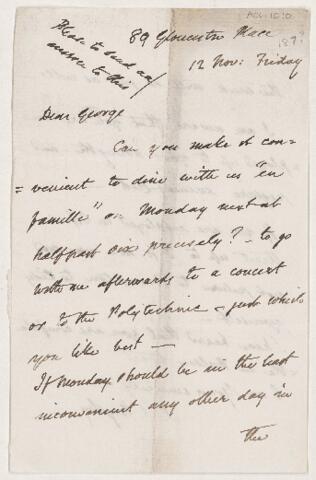 Please to send an
answer to this
89 Gloucester Place
12 Nov: Friday
Dear George
Can you make it con=
=venient to dine with us "en
famille" on Monday next at
halfpast six precisely? - to go
with me afterwards to a concert
or to the Polytechnic - just which
you like best -
If Monday should be in the least
inconvenient any other day in
the